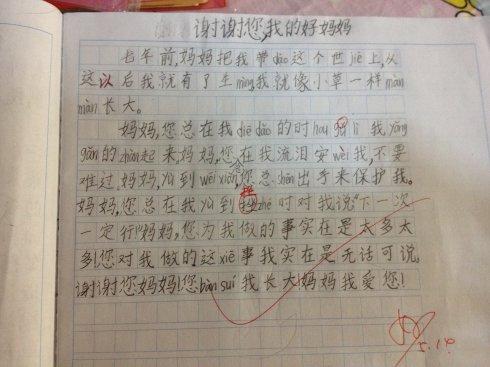 谢谢您,我的好妈妈
七年前,妈妈把我带dào这个世jiè上,从
这以后我就有了生mìng,我就像小草一样màn
màn长大。
妈妈,您总在我diē dǎo的时hou gǔ lì 我,yǒng
gǎn的zhàn起来,妈妈,您在我流泪安wèi我,不要
难过,妈妈,yù到wēi xiǎn,您总shēn出手来保护我。
妈妈,您总在我yù到挫zhé时对我说:“下一次
一定行!”妈妈,您为我做的事实在是太多太
多!您对我做的这xiē事我实在是无话可说,
谢谢您妈妈!您bàn suí我长大!妈妈我爱您!
5.14